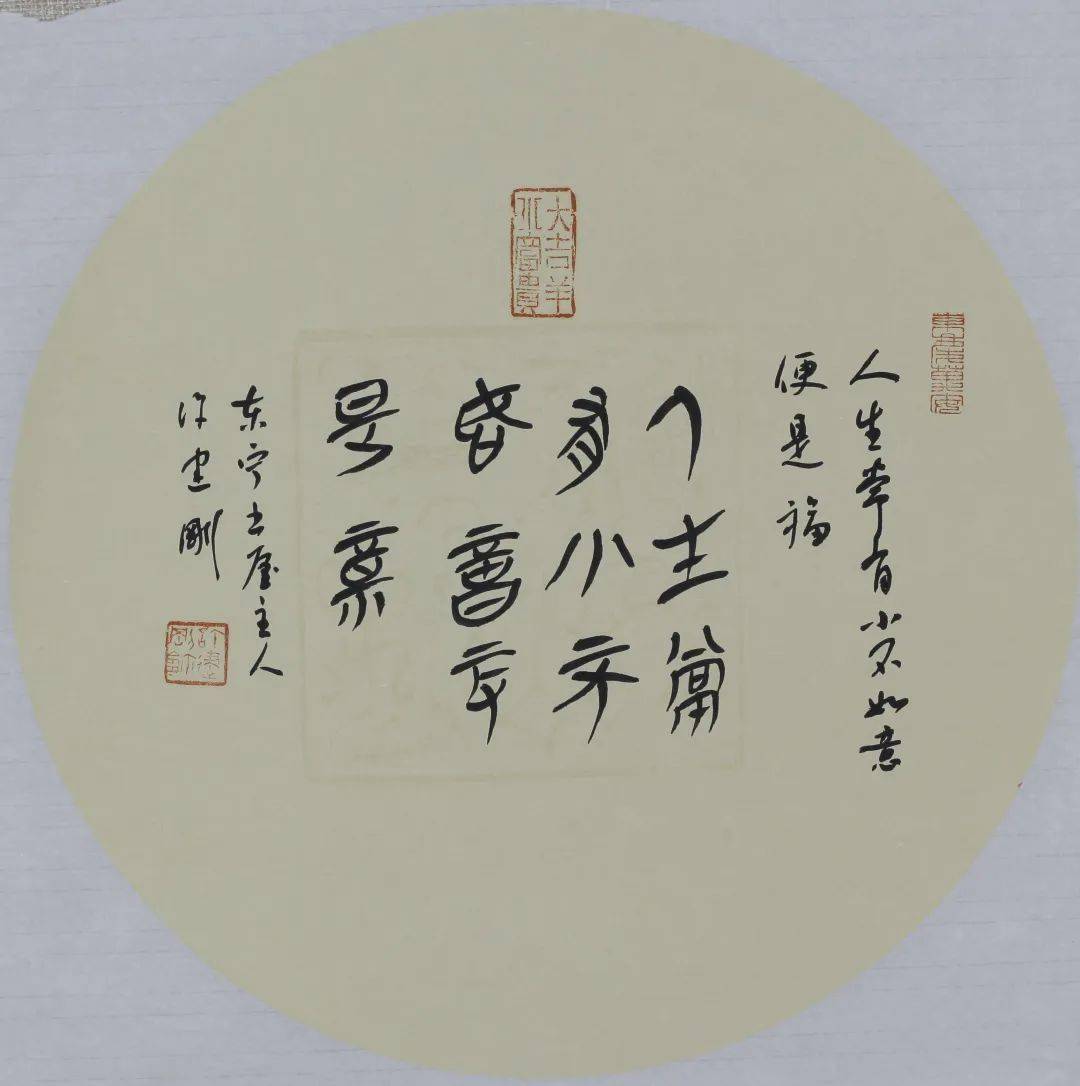 人生常有小不如意
便是福
大吉羊
富貴
人生常
有小不
如意便
是福
东宁书屋主人
许建剛